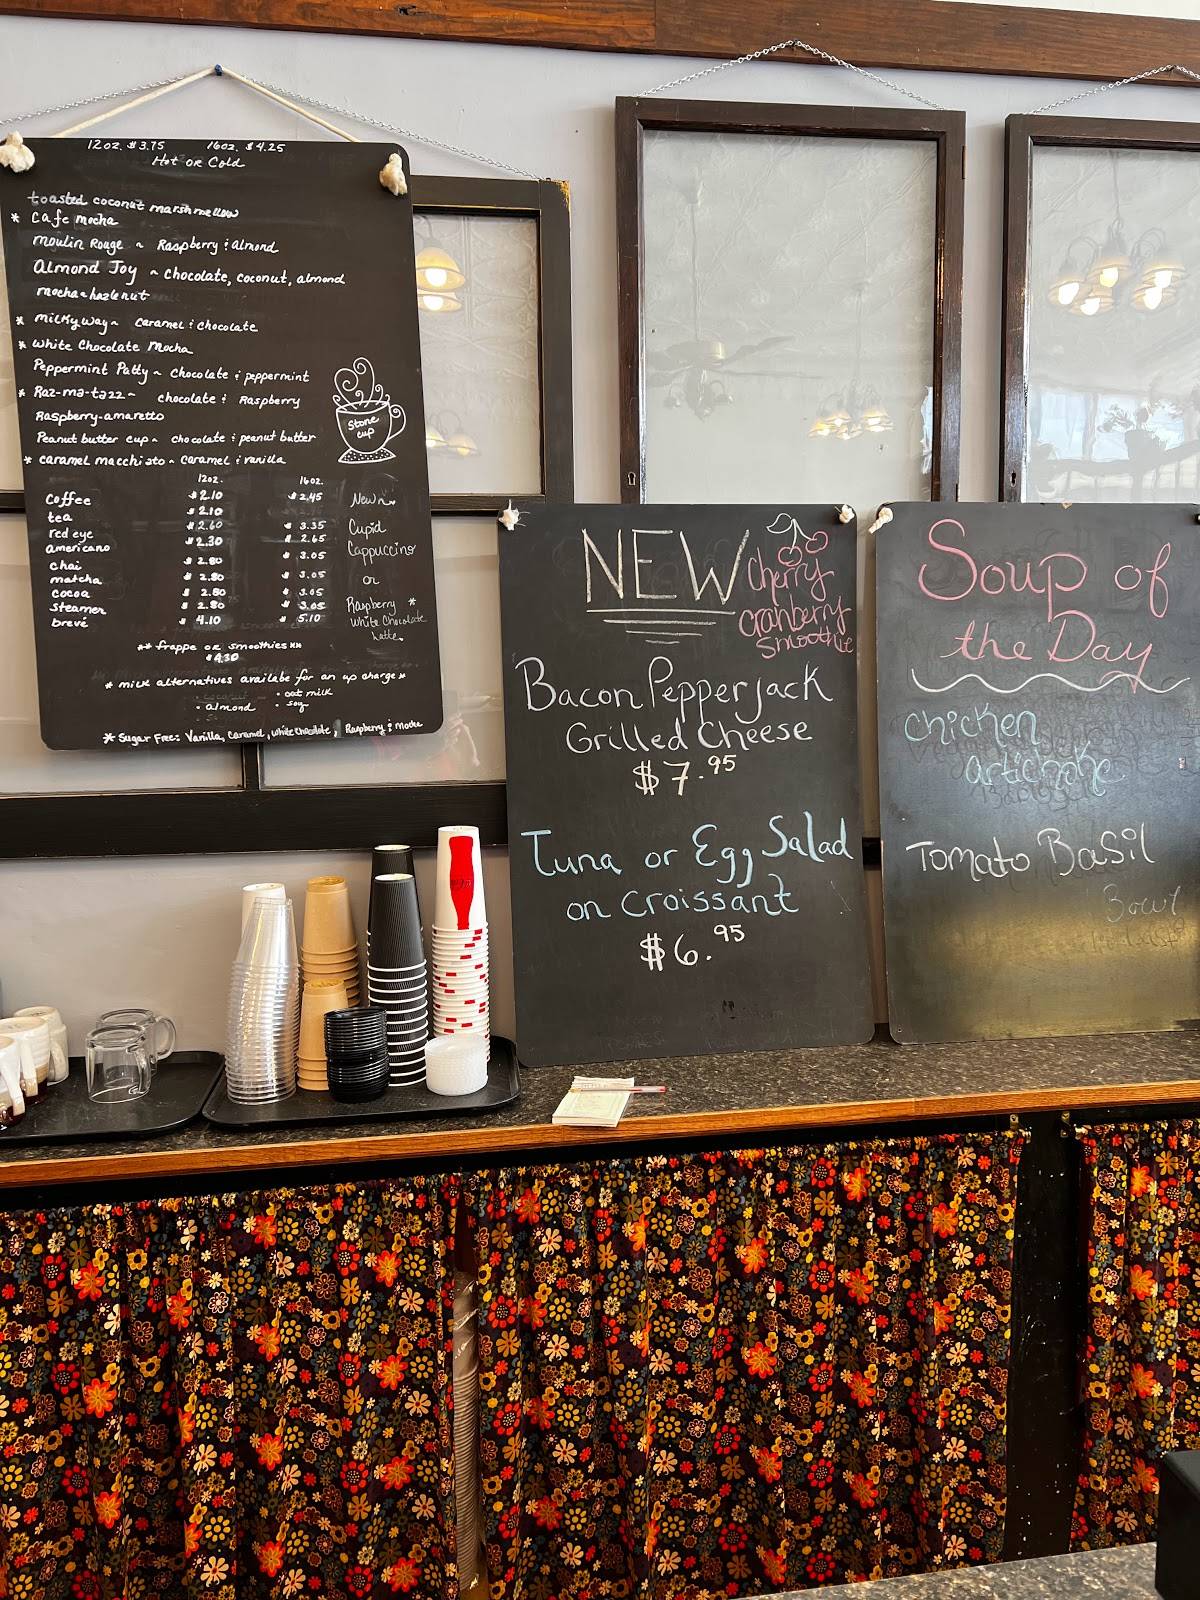 12oz. $3.75 16oz. $4.25
Hot or Cold
toasted coconut marshmellow
* Cafe mocha
Moulin Rouge ~ Raspberry & Almond
Almond Joy ~ chocolate, coconut, almond
mocha & hazlenut
* Milkyway ~ caramel & chocolate
* White Chocolate Mocha
Peppermint Patty ~ chocolate & peppermint
* Raz-ma-tazz ~ chocolate & Raspberry
Raspberry-amaretto
Peanut butter cup ~ chocolate & peanut butter
* caramel macchiato ~ caramel & vanilla
Stone
cup
12oz. 16oz.
Coffee $2.10 $2.45
tea $2.10
red eye $2.60 $3.35
americano $2.30 $2.65
chai $2.80 $3.05
matcha $2.80 $3.05
cocoa $2.80 $3.05
steamer $2.80 $3.05
brevé $4.10 $5.10
New
Cupid
Cappuccino
or
Raspberry *
White Chocolate
Latte
** frappe or smoothies **
$4.30
* milk alternatives availabe for an up charge *
· coconut · oat milk
· almond · soy
* Sugar Free: Vanilla, Caramel, white chocolate, Raspberry & Mocha
NEW
Cherry
cranberry
Smoothie
Bacon Pepperjack
Grilled Cheese
$7.95
Tuna or Egg Salad
on croissant
$6.95
Soup of
the Day
Chicken
artichoke
Tomato Basil
Bowl